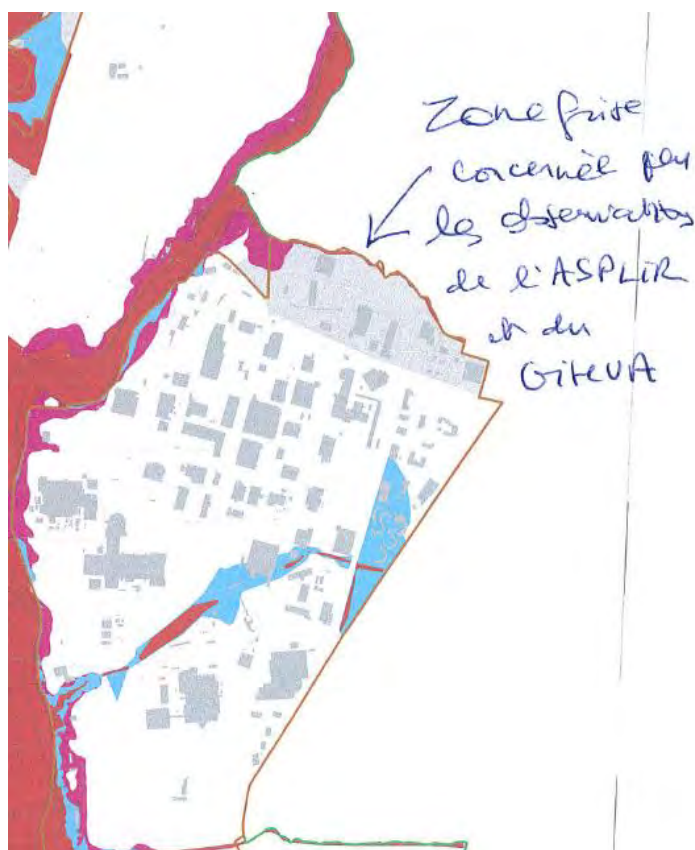 Zone grise
concernée par
les observations
de l'ASPLIR
et du
GiHeVA